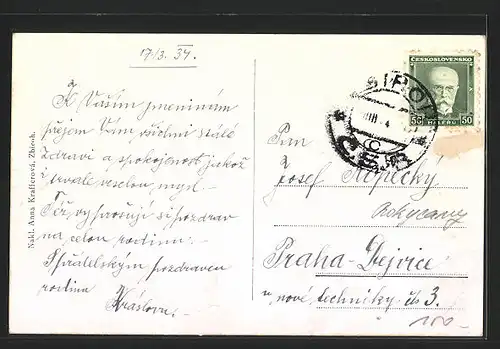 17/3. 34.
K Vašim jmeninám
přejem Vám všichni stálé
zdraví a spokojenost jakož
i trvale veselou mysl.
Též vyřizuji si pozdrav
na celou rodinu.
S přátelským pozdravem
rodina
Kraslova
Nákl. Anna Krafferová, Zbiroh.
ČESKOSLOVENSKO
50 HALÉŘŮ 50
ZBIROH
ČSR
Pan
Josef Kopecký
Rokycany
Praha-Dejvice
u nové techniky čís 3.